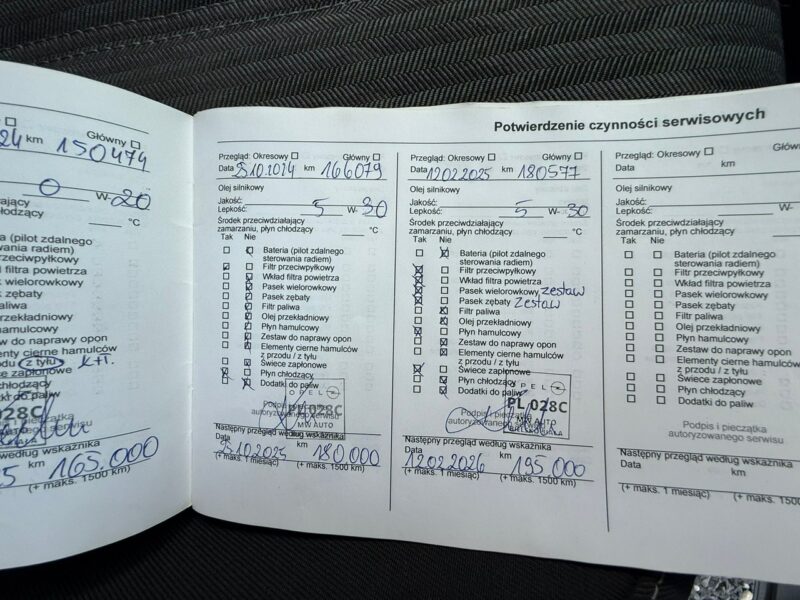 Potwierdzenie czynności serwisowych
24 km 150474
Główny
0 W-20
chłodzący °C
a (pilot zdalnego
erowania radiem)
rzeciwpyłkowy
d filtra powietrza
k wielorowkowy
k zębaty
paliwa
rzekładniowy
hamulcowy
w do naprawy opon
enty cierne hamulców
odu (z tyłu) K+T.
iece zapłonowe
chłodzący
tki do paliw
028C
według wskaźnika
5 km 165.000
(+ maks. 1500 km)
Przegląd: Okresowy Główny
Data 25.10.2024 km 166079
Olej silnikowy
Jakość:
Lepkość: 5 W- 30
Środek przeciwdziałający
zamarzaniu, płyn chłodzący: °C
Tak Nie
Bateria (pilot zdalnego
sterowania radiem)
Filtr przeciwpyłkowy
Wkład filtra powietrza
Pasek wielorowkowy
Pasek zębaty
Filtr paliwa
Olej przekładniowy
Płyn hamulcowy
Zestaw do naprawy opon
Elementy cierne hamulców
z przodu / z tyłu
Świece zapłonowe
Płyn chłodzący
Dodatki do paliw
OPEL
PL 028C
MW AUTO
Podpis i pieczątka
autoryzowanego serwisu
Następny przegląd według wskaźnika
Data 25.10.2025 km 180.000
(+ maks. 1 miesiąc) (+ maks. 1500 km)
Przegląd: Okresowy Główny
Data 12.02.2025 km 180577
Olej silnikowy
Jakość:
Lepkość: 5 W- 30
Środek przeciwdziałający
zamarzaniu, płyn chłodzący: °C
Tak Nie
Bateria (pilot zdalnego
sterowania radiem)
Filtr przeciwpyłkowy
Wkład filtra powietrza
Pasek wielorowkowy zestaw
Pasek zębaty zestaw
Filtr paliwa
Olej przekładniowy
Płyn hamulcowy
Zestaw do naprawy opon
Elementy cierne hamulców
z przodu / z tyłu
Świece zapłonowe
Płyn chłodzący
Dodatki do paliw
OPEL
PL 028C
MW AUTO
Podpis i pieczątka
autoryzowanego serwisu
Następny przegląd według wskaźnika
Data 12.02.2026 km 195.000
(+ maks. 1 miesiąc) (+ maks. 1500 km)
Przegląd: Okresowy Główn
Data km
Olej silnikowy
Jakość:
Lepkość: W-
Środek przeciwdziałający
zamarzaniu, płyn chłodzący:
Tak Nie
Bateria (pilot zdalnego
sterowania radiem)
Filtr przeciwpyłkowy
Wkład filtra powietrza
Pasek wielorowkowy
Pasek zębaty
Filtr paliwa
Olej przekładniowy
Płyn hamulcowy
Zestaw do naprawy opon
Elementy cierne hamulców
z przodu / z tyłu
Świece zapłonowe
Płyn chłodzący
Dodatki do paliw
Podpis i pieczątka
autoryzowanego serwisu
Następny przegląd według wskaźnika
Data km
(+ maks. 1 miesiąc) (+ maks. 1500